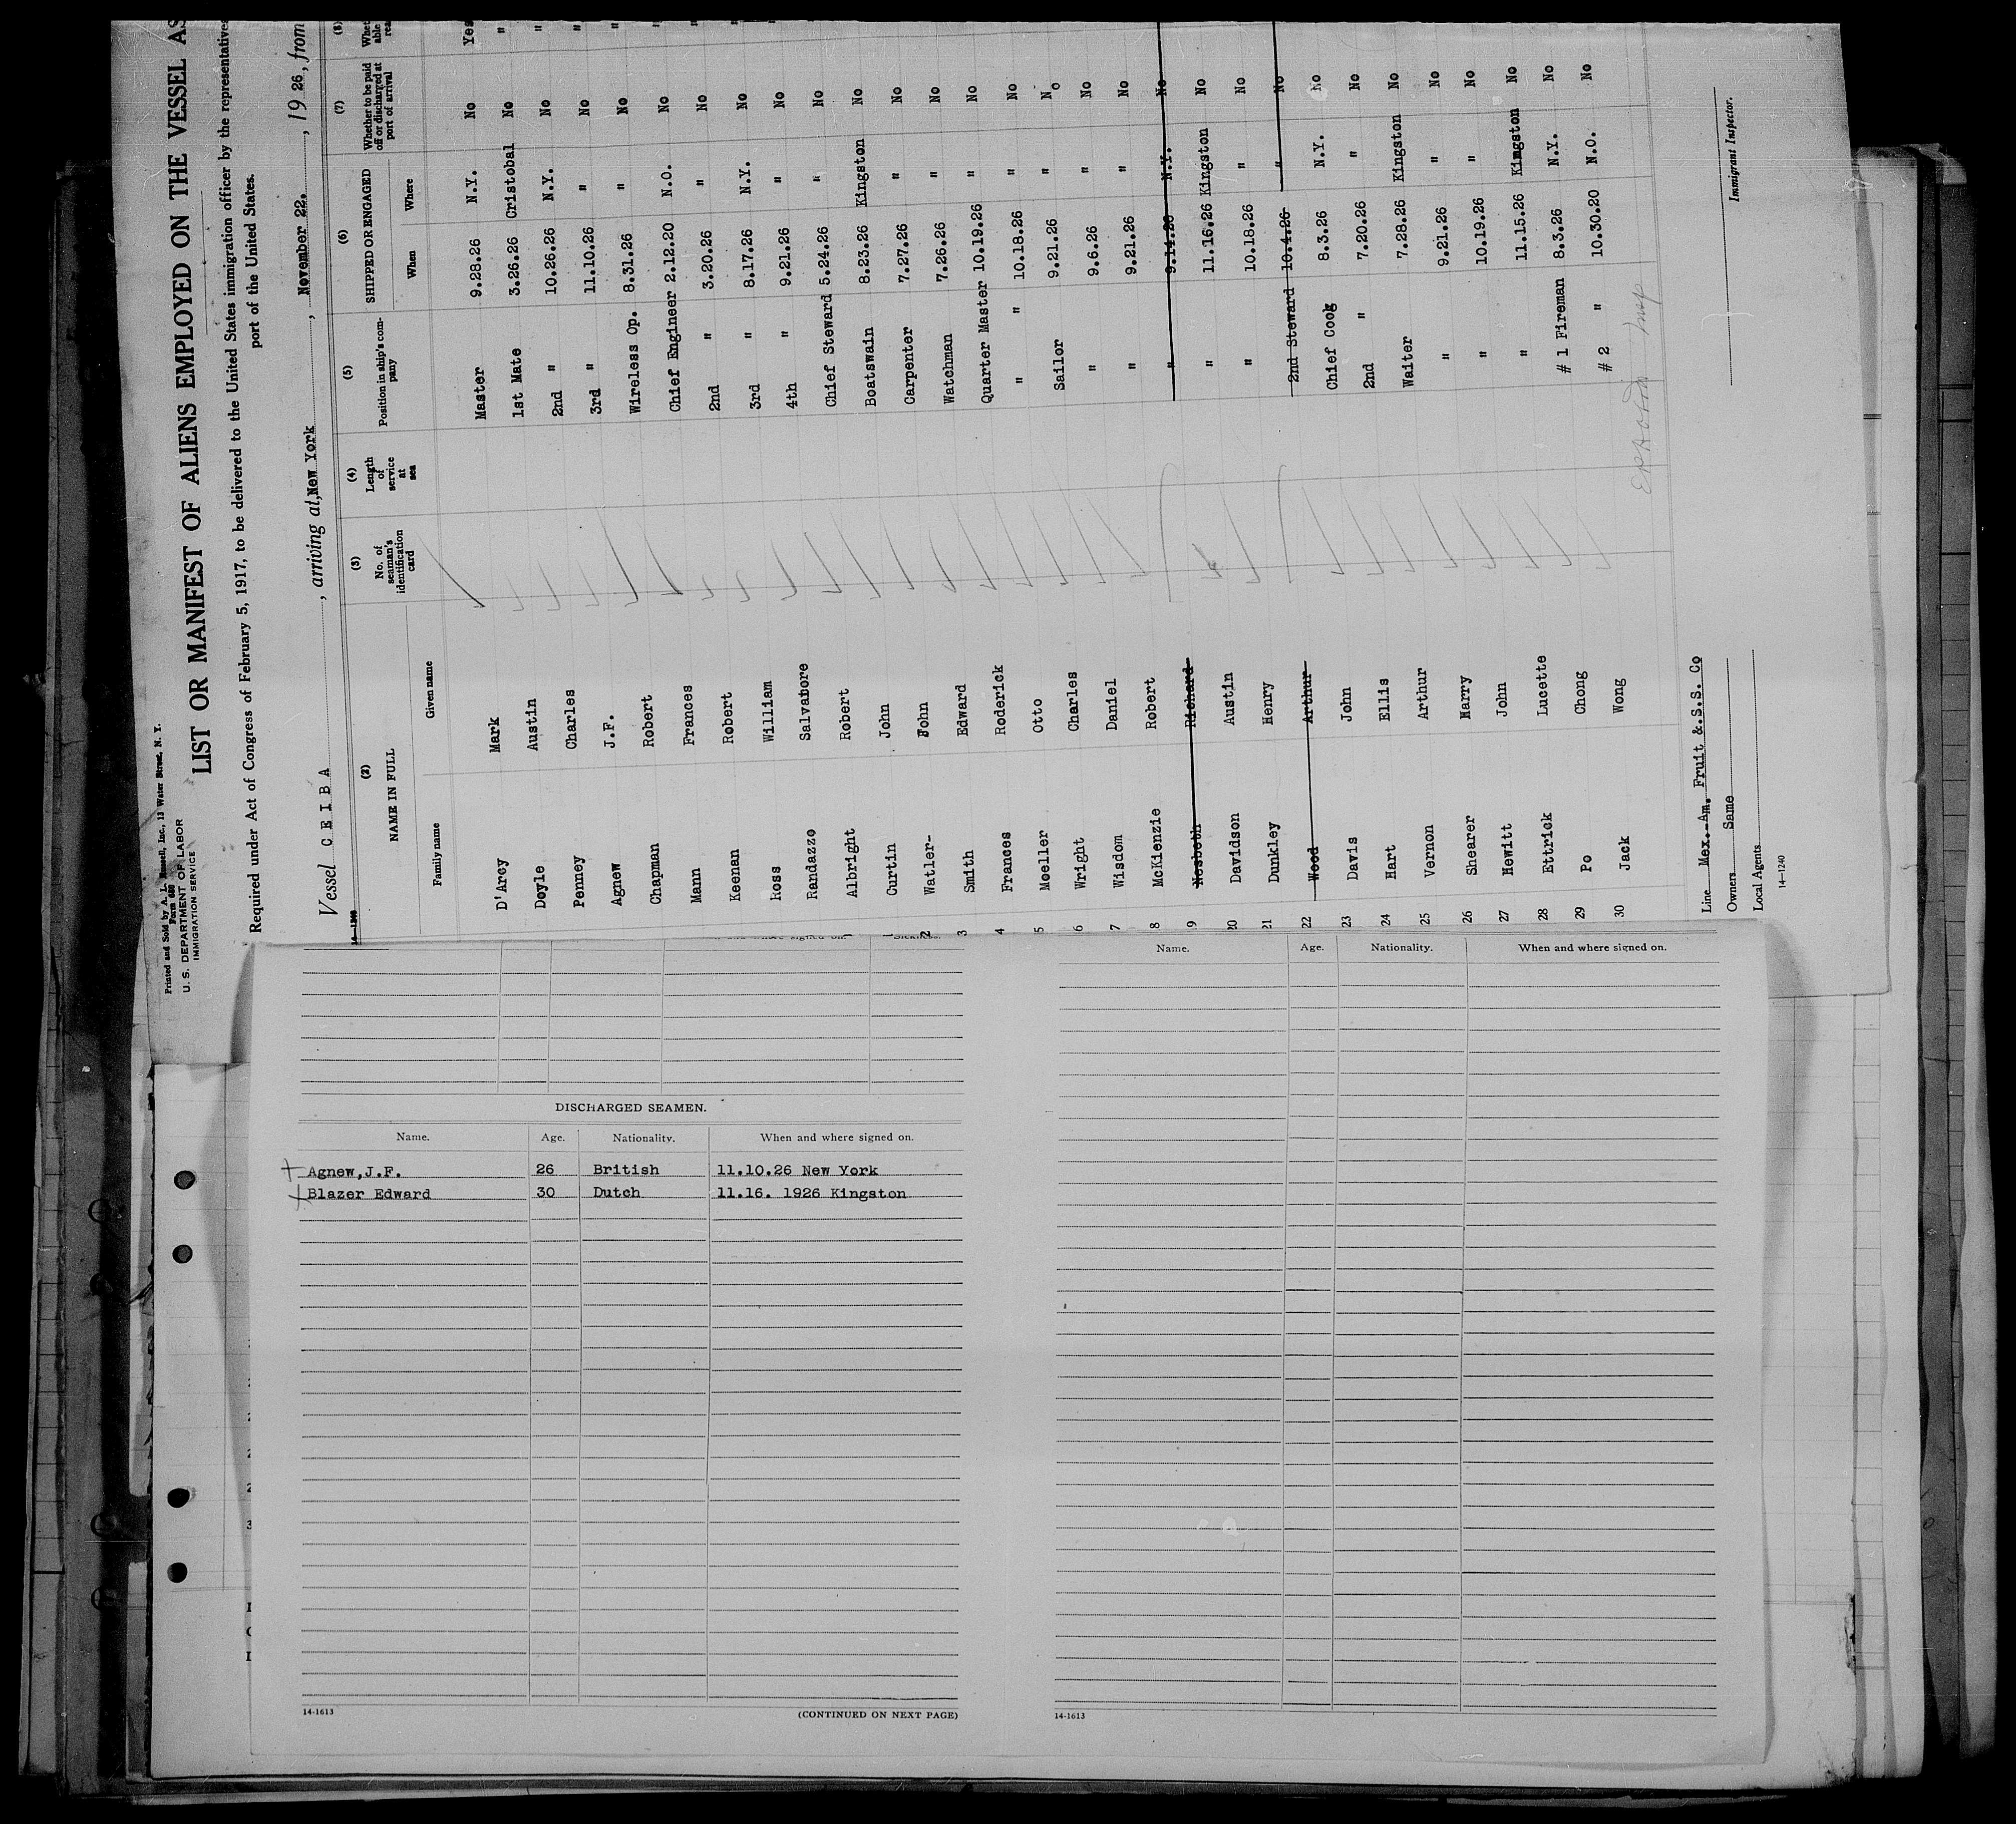 Printed and Sold by A. L. Russell, Inc., 13 Water Street, N. Y.
Form 680
U. S. DEPARTMENT OF LABOR
IMMIGRATION SERVICE
LIST OR MANIFEST OF ALIENS EMPLOYED ON THE VESSEL AS
Required under Act of Congress of February 5, 1917, to be delivered to the United States immigration officer by the representative
port of the United States.
Vessel CEIBA, arriving at, New York, November 22., 19 26, from
(2) (3) (4) (5) (6) (7) (8)
NAME IN FULL No. of seaman's identification card Length of service at sea Position in ship's company SHIPPED OR ENGAGED Whether to be paid off or discharged at port of arrival
Family name Given name When Where
D'Arcy Mark Master 9.28.26 N.Y. No Yes
Doyle Austin 1st Mate 3.26.26 Cristobal No "
Penney Charles 2nd " 10.26.26 N.Y. No "
Agnew J.F. 3rd " 11.10.26 " No "
Chapman Robert Wireless Op. 8.31.26 " No "
Mann Frances Chief Engineer 2.12.20 N.O. No "
Keenan Robert 2nd " 3.20.26 " No "
Ross William 3rd " 8.17.26 N.Y. No
Randazzo Salvatore 4th " 9.21.26 " No
Albright Robert Chief Steward 5.24.26 " No
1 Curtin John Boatswain 8.23.26 Kingston No
2 Watler- John Carpenter 7.27.26 " No
3 Smith Edward Watchman 7.26.26 " No
4 Frances Roderick Quarter Master 10.19.26 " No
5 Moeller Otto " " 10.18.26 " No
6 Wright Charles Sailor 9.21.26 " No
7 Wisdom Daniel " 9.6.26 " No
8 McKienzie Robert " 9.21.26 " No
9 Nesbeth Richard " 9.14.26 N.Y. No
20 Davidson Austin " 11.16.26 Kingston No
21 Dunkley Henry " 10.18.26 " No
22 Wood Arthur 2nd Steward 10.4.26 " No
23 Davis John Chief Cook 8.3.26 N.Y. No
24 Hart Ellis 2nd " 7.20.26 " No
25 Vernon Arthur Waiter 7.28.26 Kingston No
26 Shearer Harry " 9.21.26 " No
27 Hewitt John " 10.19.26 " No
28 Ettrick Lucette " 11.15.26 Kingston No
29 Po Chong # 1 Fireman 8.3.26 N.Y. No
30 Jack Wong # 2 " 10.30.20 N.O. No
Insp
Line Mex.-Am. Fruit &.S.S. Co
Owners Same
Local Agents
Immigrant Inspector.
14-1240
DISCHARGED SEAMEN.
Name. Age. Nationality. When and where signed on.
Agnew,J.F. 26 British 11.10.26 New York
Blazer Edward 30 Dutch 11.16. 1926 Kingston
14-1613
(CONTINUED ON NEXT PAGE)
Name. Age. Nationality. When and where signed on.
14-1613